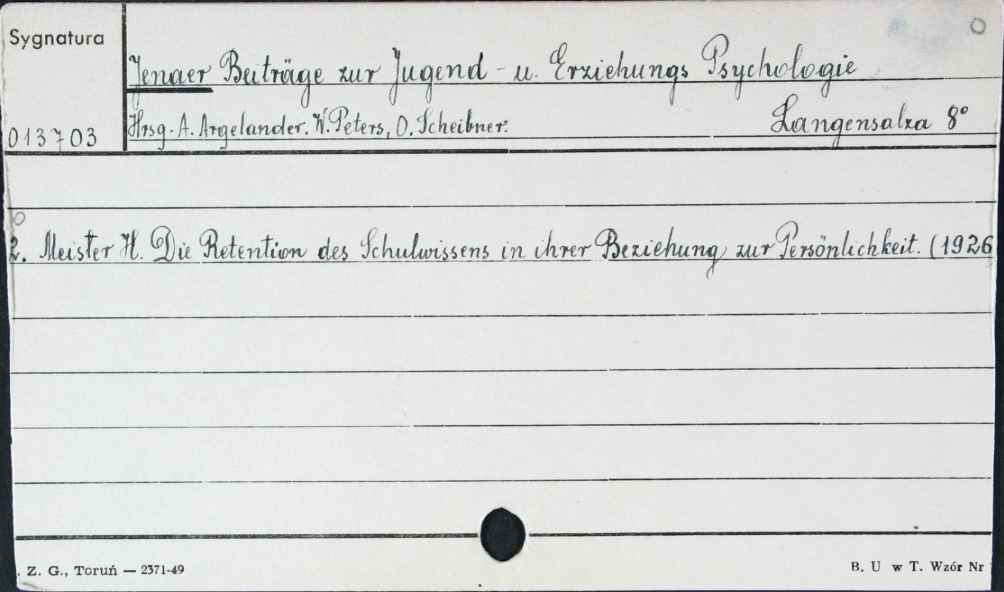 Sygnatura
Jenaer Beiträge zur Jugend - u. Erziehungs Psychologie
013703
Hrsg. A. Argelander. W. Peters, O. Scheibner. Langensalza 8°
2. Meister H. Die Retention des Schulwissens in ihrer Beziehung zur Persönlichkeit. (1926
. Z. G., Toruń — 2371-49
B. U w T. Wzór Nr